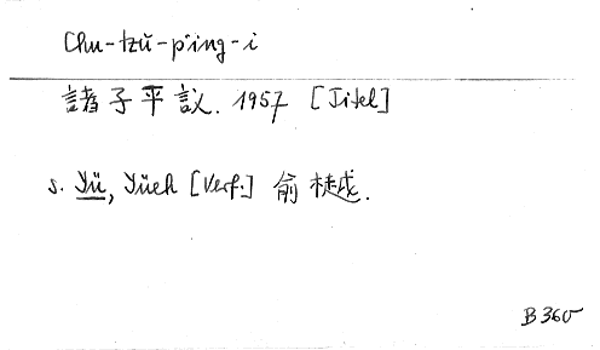 Chu-tzŭ-p'ing-i
諸子平議. 1957 [Titel]
s. Yü, Yüeh [Verf.] 俞樾.
B 360